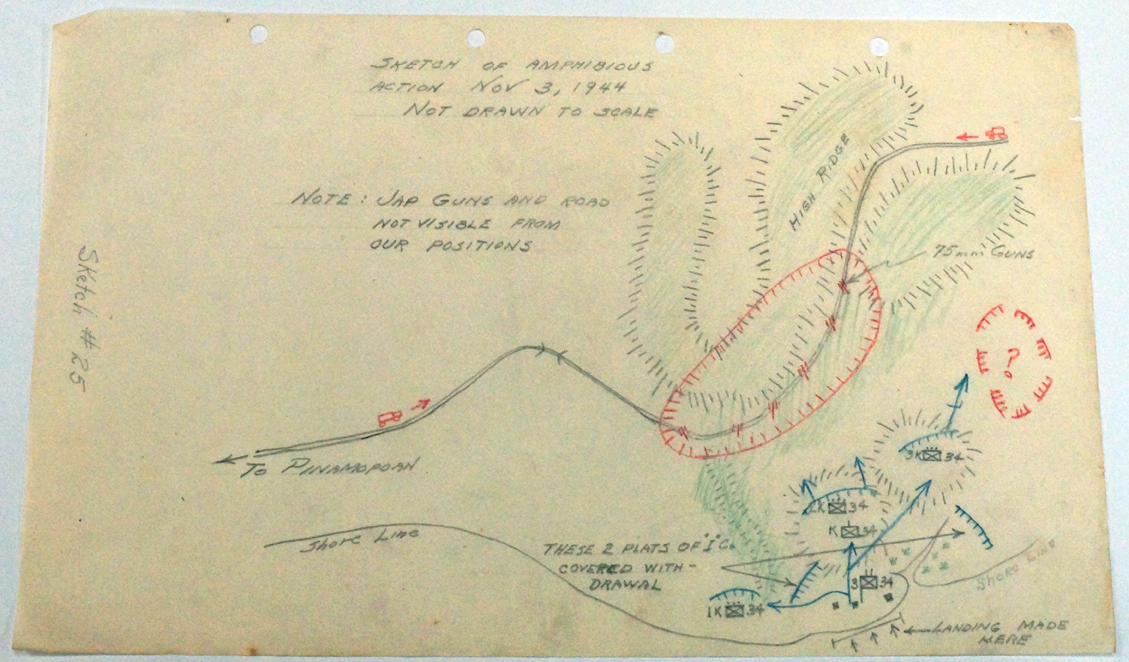 SKETCH OF AMPHIBIOUS
ACTION NOV 3, 1944
NOT DRAWN TO SCALE
NOTE: JAP GUNS AND ROAD
NOT VISIBLE FROM
OUR POSITIONS
Sketch #25
HIGH RIDGE
75mm GUNS
?
TO PINAMOPOAN
Shore Line
3K 34
2K 34
K 34
THESE 2 PLATS OF "I" C.
COVERED WITH-
DRAWAL
3 34
1K 34
SHORE LINE
LANDING MADE
HERE